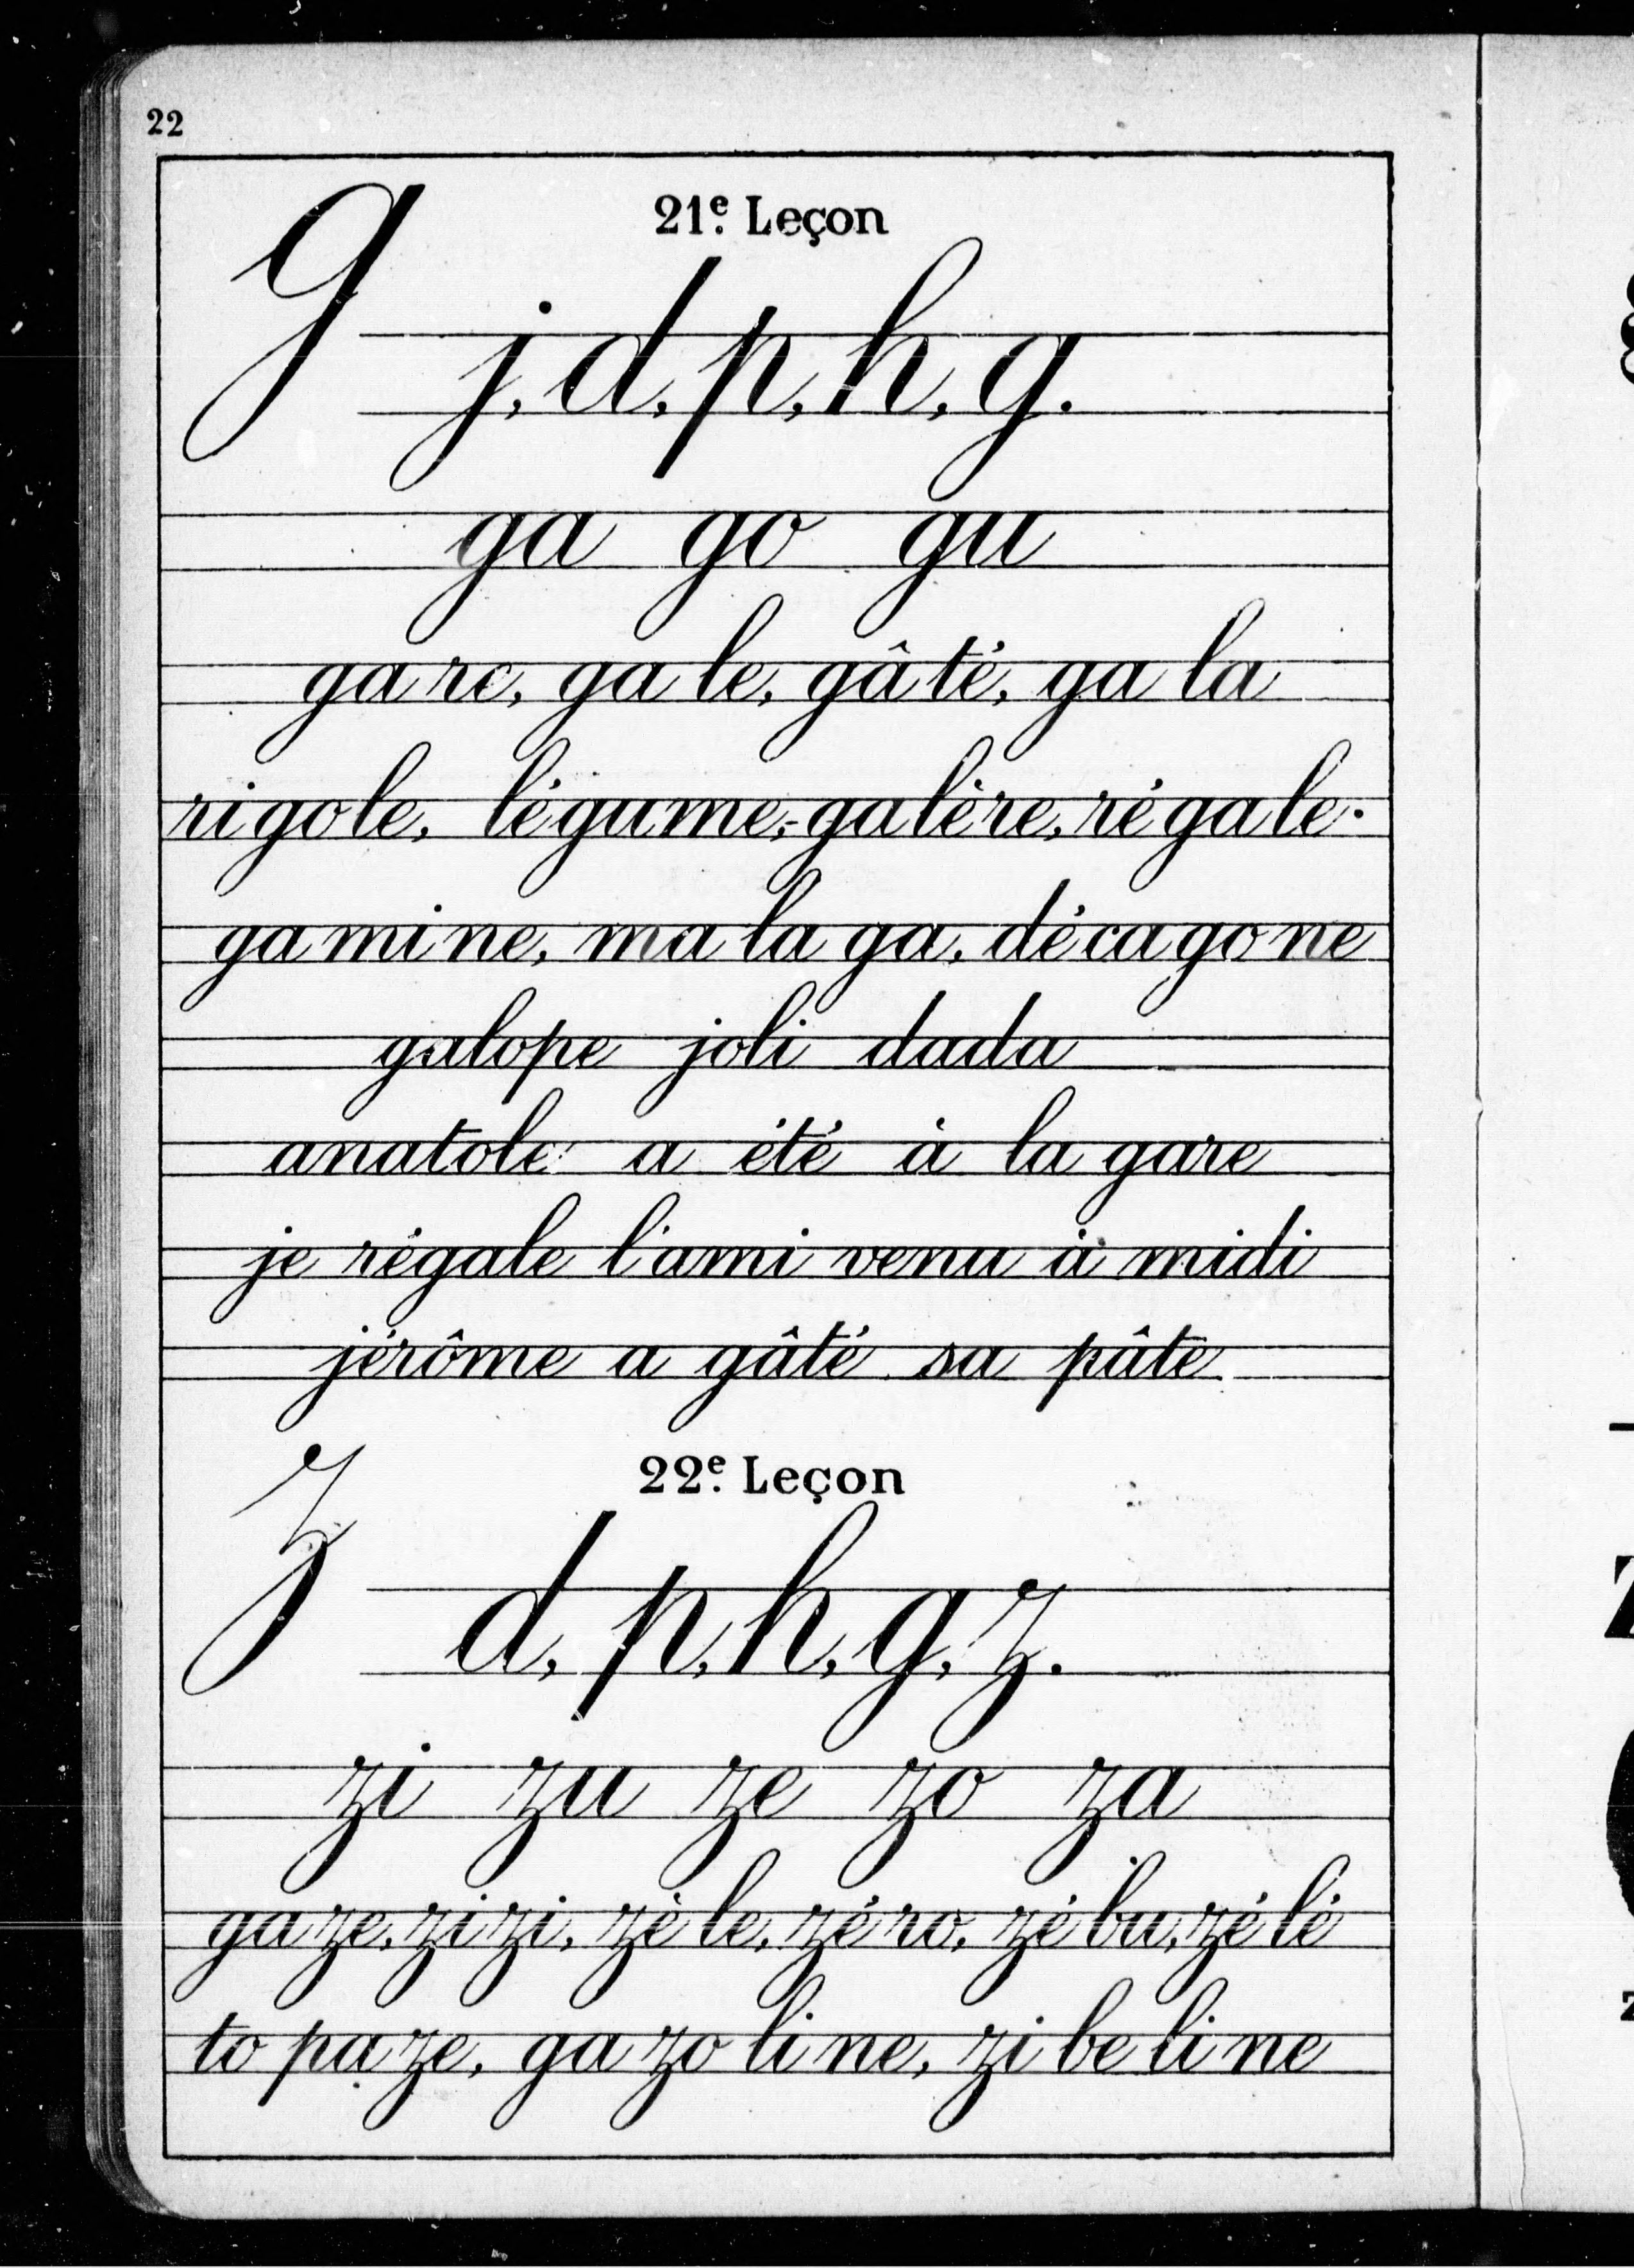 22
21e. Leçon
g
j, d, p, h, g.
ga go gu
ga re, ga le, gâ té, ga la
ri go le, lé gume, galère, ré ga le.
ga mi ne, ma la ga, dé ca go ne
galope joli dada
anatole a été à la gare
je régale l'ami venu à midi
jérôme a gâté sa pâte
22e. Leçon
z
d, p, h, g, z.
zi zu ze zo za
ga ze, zi zi, zè le, zé ro, zé bu, zé lé
to pa ze, ga zo li ne, zi be li ne